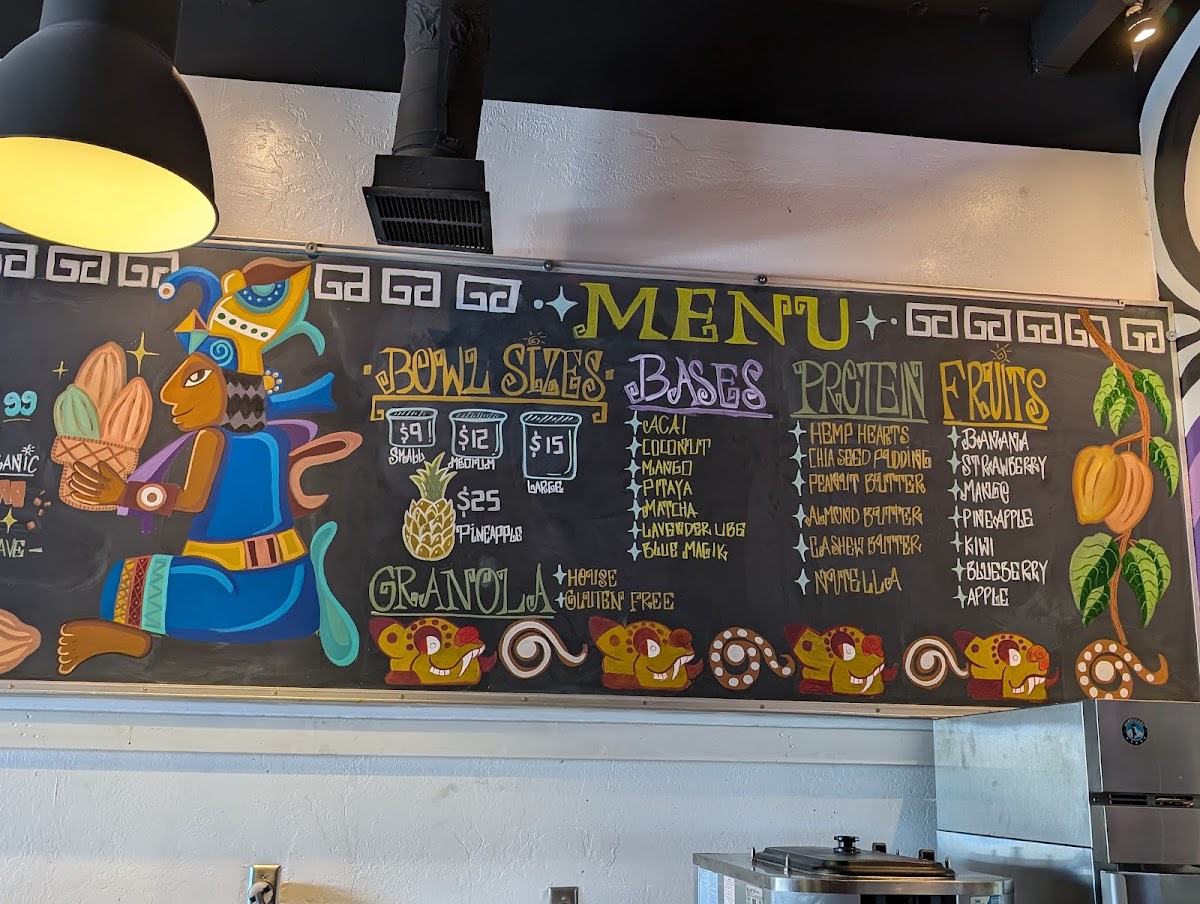 MENU
99
GANIC
AVE –
BOWL SIZES
$9
SMALL
$12
MEDIUM
$15
LARGE
$25
PINEAPPLE
GRANOLA
HOUSE
GLUTEN FREE
BASES
ACAI
COCONUT
MANGO
PITAYA
MATCHA
LAVENDER UBE
BLUE MAGIK
PROTEIN
HEMP HEARTS
CHIA SEED PUDDING
PEANUT BUTTER
ALMOND BUTTER
CASHEW BUTTER
NUTELLA
FRUITS
BANANA
STRAWBERRY
MANGO
PINEAPPLE
KIWI
BLUEBERRY
APPLE